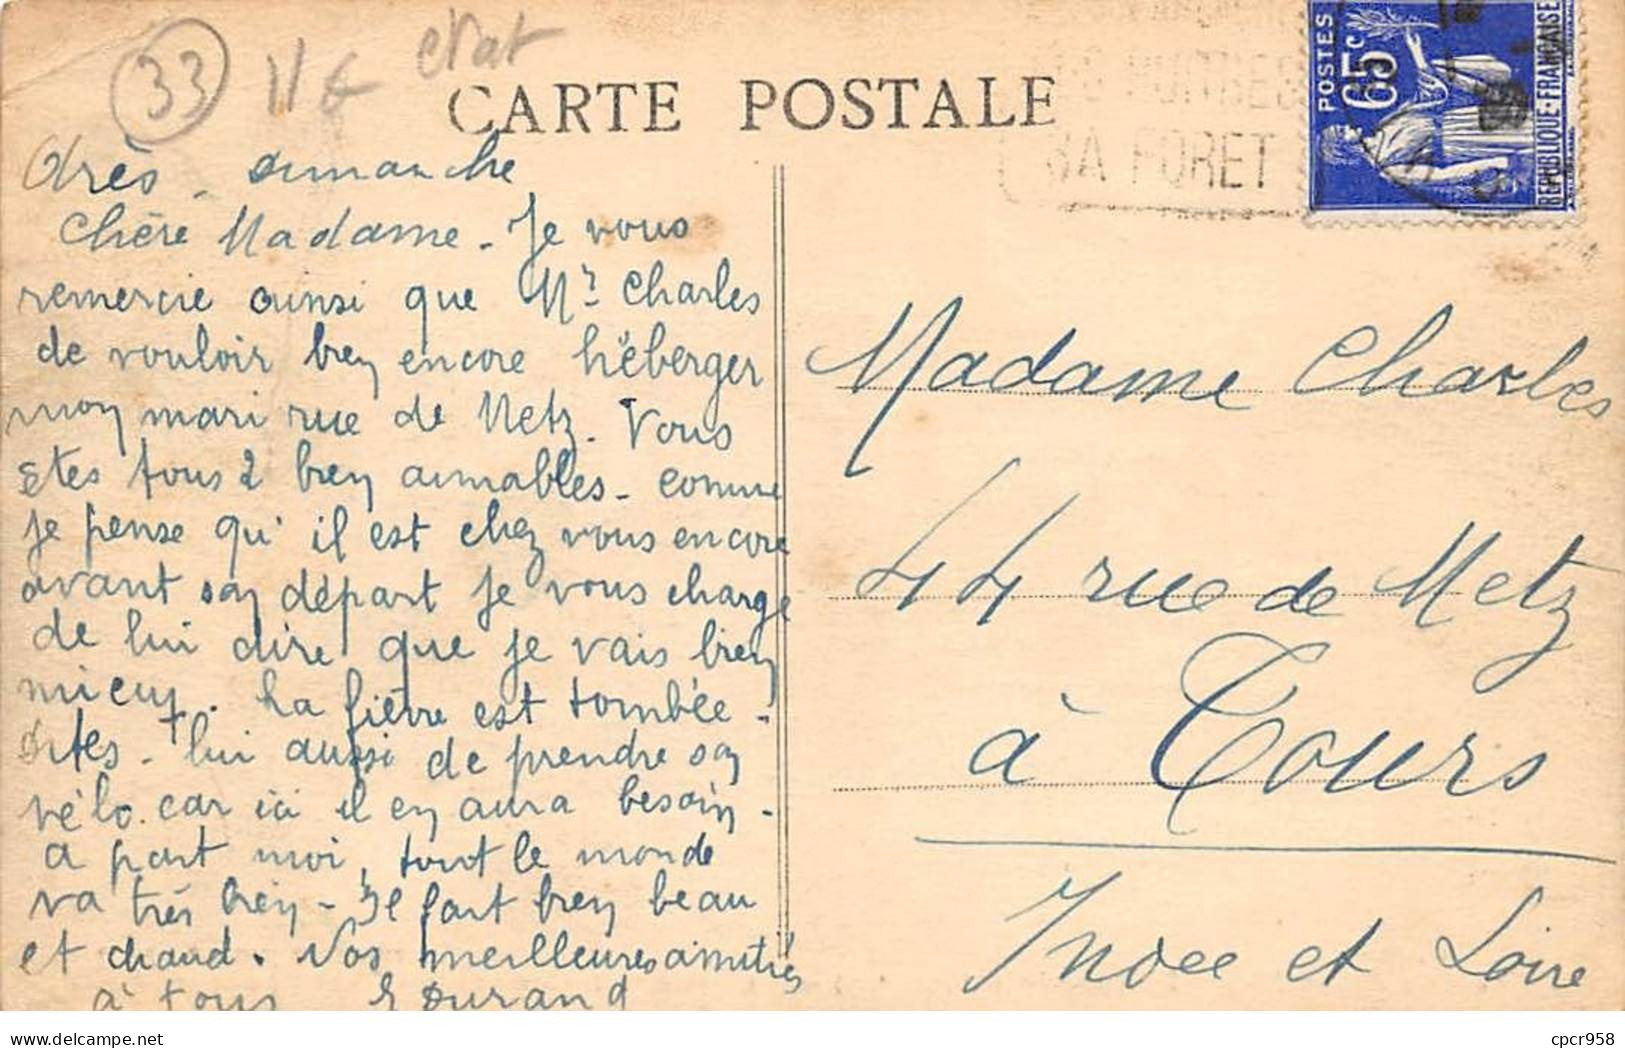 33
11 €
état
CARTE POSTALE
HUITRES
SA FORET
POSTES
65c
REPUBLIQUE-FRANÇAISE
Arès - Dimanche
Chère Madame - Je vous
remercie ainsi que Mr Charles
de vouloir bien encore héberger
mon mari rue de Metz. Vous
etes tous 2 bien aimables - comme
je pense qu'il est chez vous encore
avant son départ je vous charge
de lui dire que je vais bien
mieux. La fièvre est tombée -
Dites - lui aussi de prendre son
vélo. car ici il en aura besoin -
a part moi, tout le monde
va très bien - Il fait bien beau
et chaud. Vos meilleures amitiés
à tous E Durand
Madame Charles
44 rue de Metz
à Tours
Indre et Loire
Postcards
cpcr958